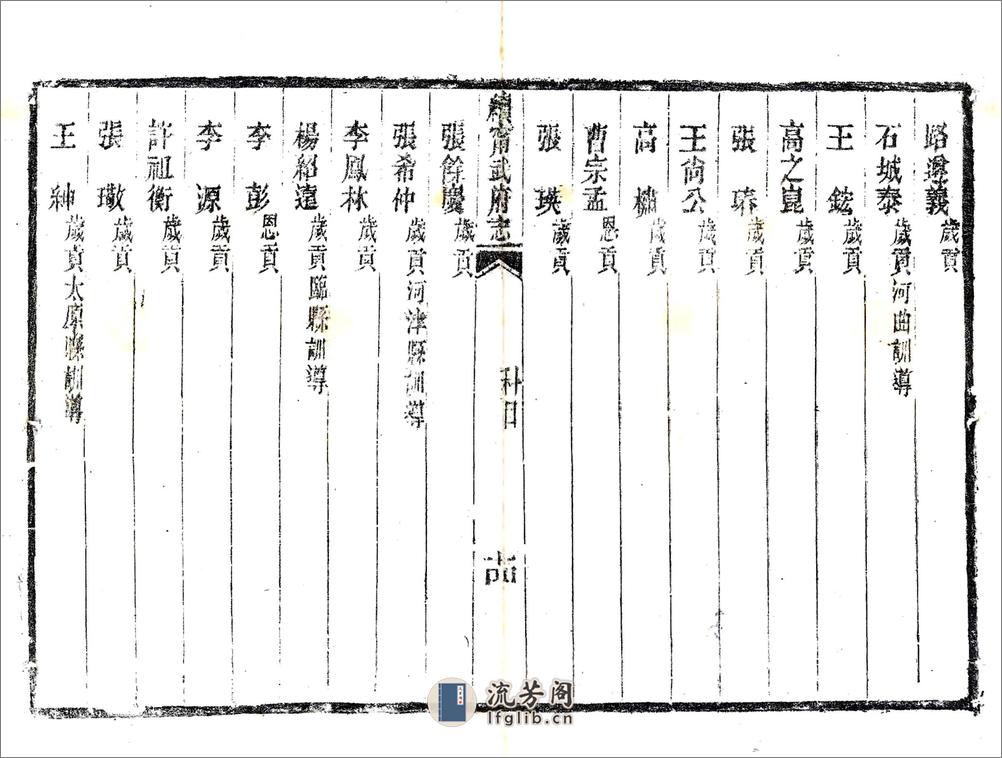 路遵義 歲貢
石城泰 歲貢河曲訓導
王鋐 歲貢
高之崑 歲貢
張琫 歲貢
王尙公 歲貢
高 歲貢
曹宗孟 恩貢
張瑛 歲貢
續甯武府志
科目
十四
張餘慶 歲貢
張希仲 歲貢河津縣訓導
李鳳林 歲貢
楊紹遠 歲貢臨縣訓導
李彭 恩貢
李源 歲貢
許祖衡 歲貢
張璥 歲貢
王紳 歲貢太原縣訓導
流芳阁
lfglib.cn